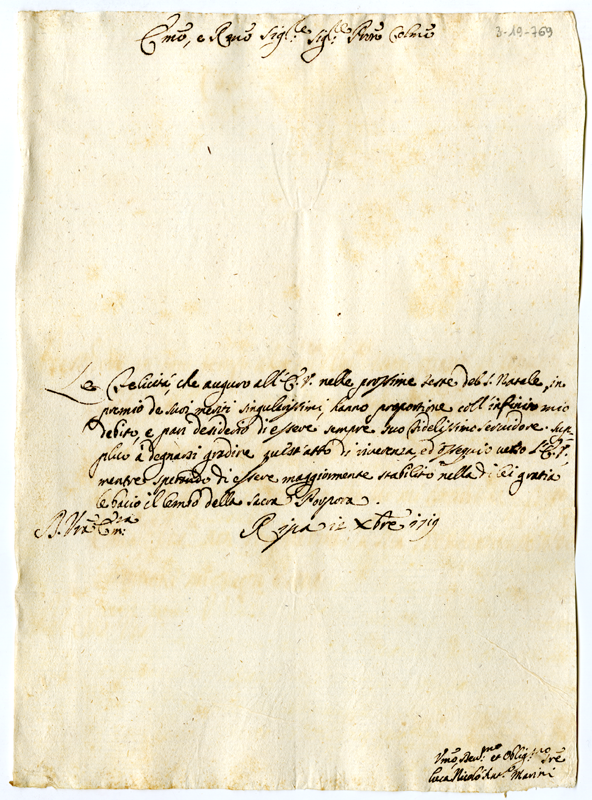 Emo, e Rmo Sig.re Sig.re Prõn Colmo
3-19-769
Le Felicità, che auguro all' E. V. nelle prossime feste del S. Natale, in
premio de suoi meriti singularissimi, hanno proportione coll' infinito mio
debito, e pari desiderio di essere sempre suo fidelissimo servidore. Sup
plico à degnarsi gradire quest' atto di riverenza, ed ossequio verso l' E. V.,
mentre sperando di essere maggiormente stabilito nella di lei gratia
le bacio il lembo della Sacra Porpora.
D. Vra Em.za
Ripa 12 Xbre 1719
Vmo, Dev.mo et Oblig.mo Sre
Luca Nicolò Marini